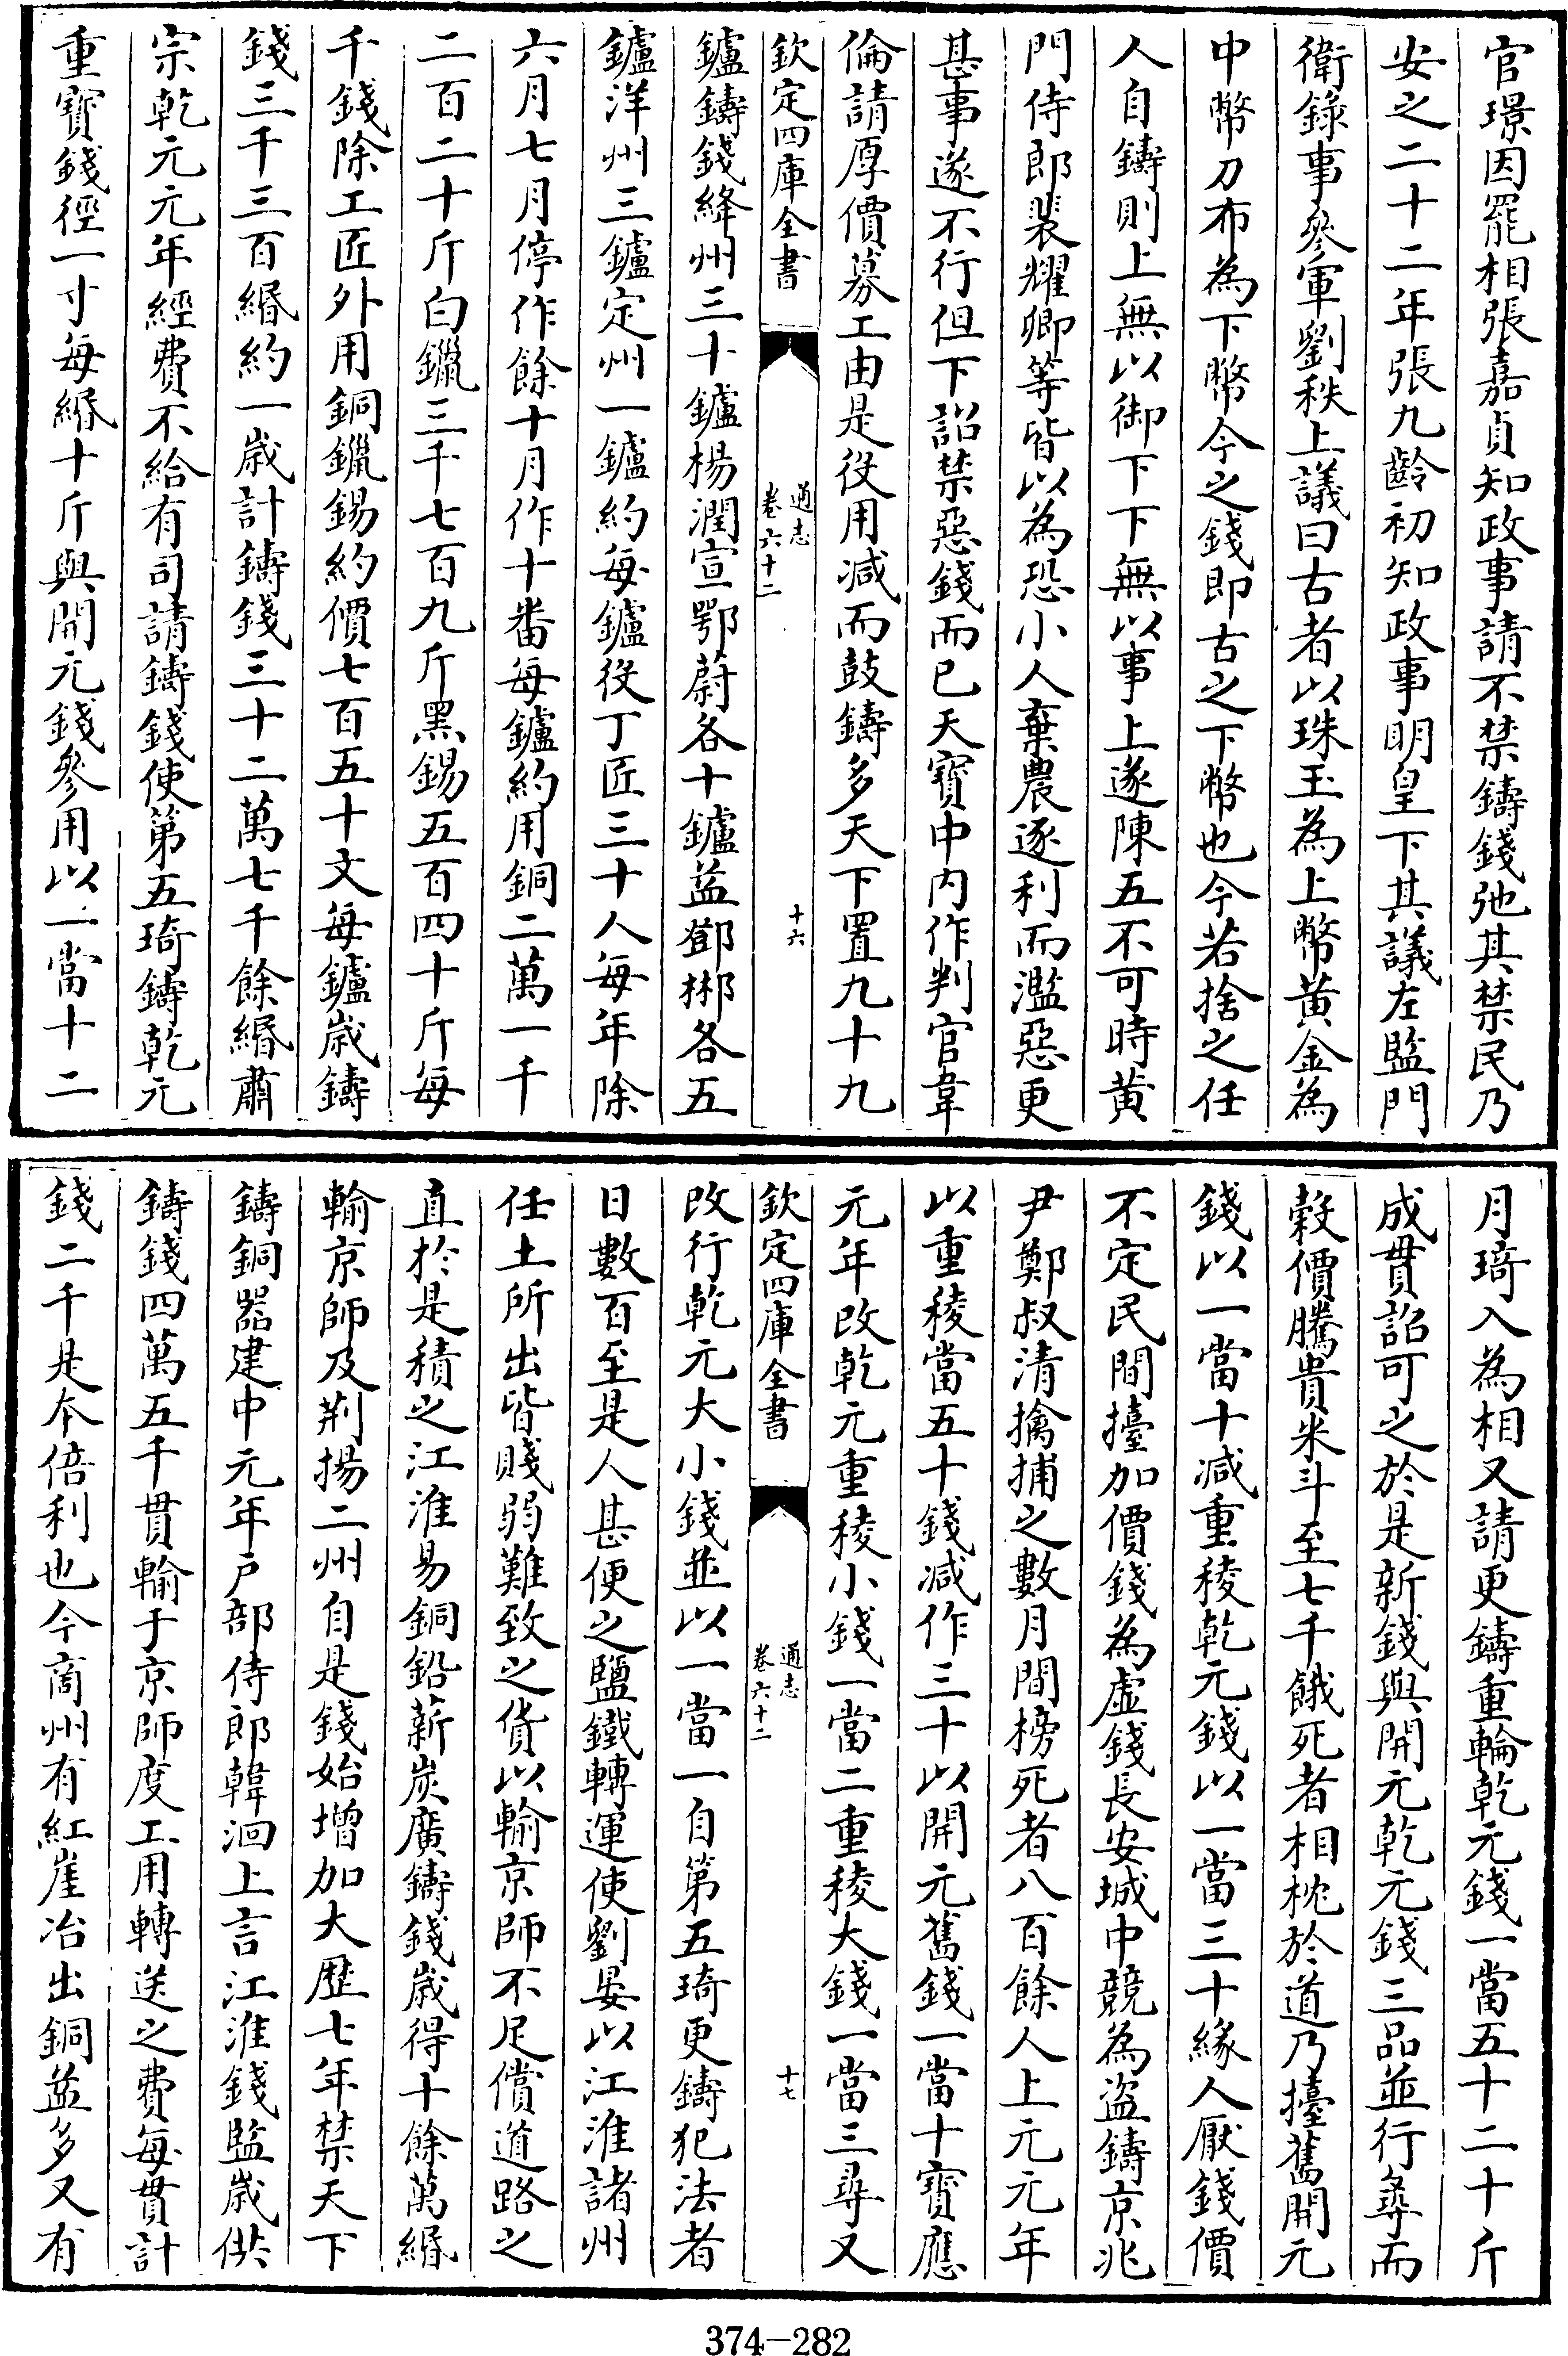 官璟因罷相張嘉貞知政事請不禁鑄錢弛其禁民乃
安之二十二年張九齡初知政事明皇下其議左監門
衛錄事參軍劉秩上議曰古者以珠玉為上幣黄金為
中幣刀布為下幣今之錢即古之下幣也今若捨之任
人自鑄則上無以御下下無以事上遂陳五不可時黄
門侍郎裴耀卿等皆以為恐小人棄農逐利而濫惡更
甚事遂不行但下詔禁惡錢而已天寶中内作判官韋
倫請厚價募工由是役用减而鼓鑄多天下置九十九
欽定四庫全書
通志
卷六十二
十六
鑪鑄錢絳州三十鑪楊潤宣鄂蔚各十鑪益鄧郴各五
鑪洋州三鑪定州一鑪約每鑪役丁匠三十人每年除
六月七月停作餘十月作十番每鑪約用銅二萬一千
二百二十斤白鑞三千七百九斤黑錫五百四十斤每
千錢除工匠外用銅鑞錫約價七百五十文每鑪歲鑄
錢三千三百緡約一歲計鑄錢三十二萬七千餘緡肅
宗乾元元年經費不給有司請鑄錢使第五琦鑄乾元
重寶錢徑一寸每緡十斤與開元錢參用以一當十二
月琦入為相又請更鑄重輪乾元錢一當五十二十斤
成貫詔可之於是新錢與開元乾元錢三品並行㝷而
榖價騰貴米斗至七千餓死者相枕於道乃擡舊開元
錢以一當十减重稜乾元錢以一當三十緣人厭錢價
不定民間擡加價錢為虛錢長安城中競為盜鑄京兆
尹鄭叔清擒捕之數月間榜死者八百餘人上元元年
以重稜當五十錢减作三十以開元舊錢一當十寶應
元年改乾元重稜小錢一當二重稜大錢一當三尋又
欽定四庫全書
通志
卷六十二
十七
改行乾元大小錢並以一當一自第五琦更鑄犯法者
日數百至是人甚便之鹽鐵轉運使劉晏以江淮諸州
任土所出皆賤弱難致之貨以輸京師不足償道路之
直於是積之江淮易銅鉛薪炭廣鑄錢歲得十餘萬緡
輸京師及荆揚二州自是錢始增加大歴七年禁天下
鑄銅器建中元年戶部侍郎韓洄上言江淮錢監歲供
鑄錢四萬五千貫輸于京師度工用轉送之費每貫計
錢二千是本倍利也今商州有紅崖冶出銅益多又有
374-282